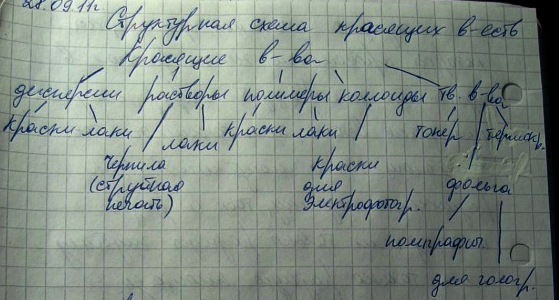 28.09.11г.
Структурная схема красящих в-еств
Красящие в-ва
дисперсии растворы полимеры коллоиды тв. в-ва
краски лаки лаки краски лаки тонер термокр.
чернила краски фольга
(струйная для
печать) Электрофотогр.
полиграфич.
для гологр.